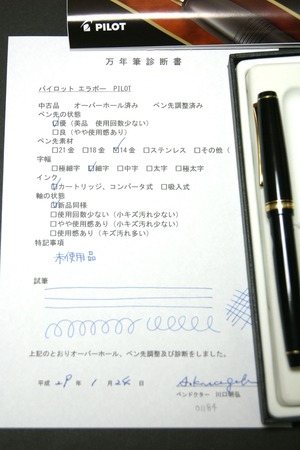 PILOT
万年筆診断書
パイロット エラボー PILOT
中古品 オーバーホール済み ペン先調整済み
ペン先の状態
☑優（美品 使用回数少ない）
□良（やや使用感あり）
ペン先素材
□21金 □18金 ☑14金 □ステンレス □その他（
字幅
□極細字 ☑細字 □中字 □太字 □極太字
インク
☑カートリッジ、コンバータ式 □吸入式
軸の状態
☑新品同様
□使用回数少ない（小キズ汚れ少ない）
□やや使用感あり（小キズ汚れ少ない）
□使用感あり（キズ汚れ多い）
特記事項
未使用品
試筆
上記のとおりオーバーホール、ペン先調整及び診断をしました。
平成 29 年 1 月 24 日
ペンドクター 川口明弘
01184